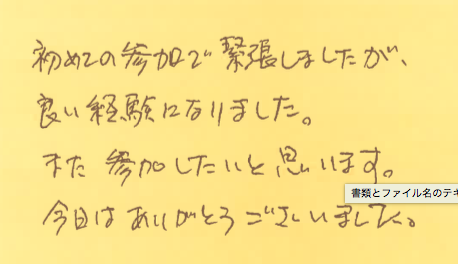 初めての参加で緊張しましたが、
良い経験になりました。
また参加したいと思います。
書類とファイル名のテキ
今日はありがとうございました。